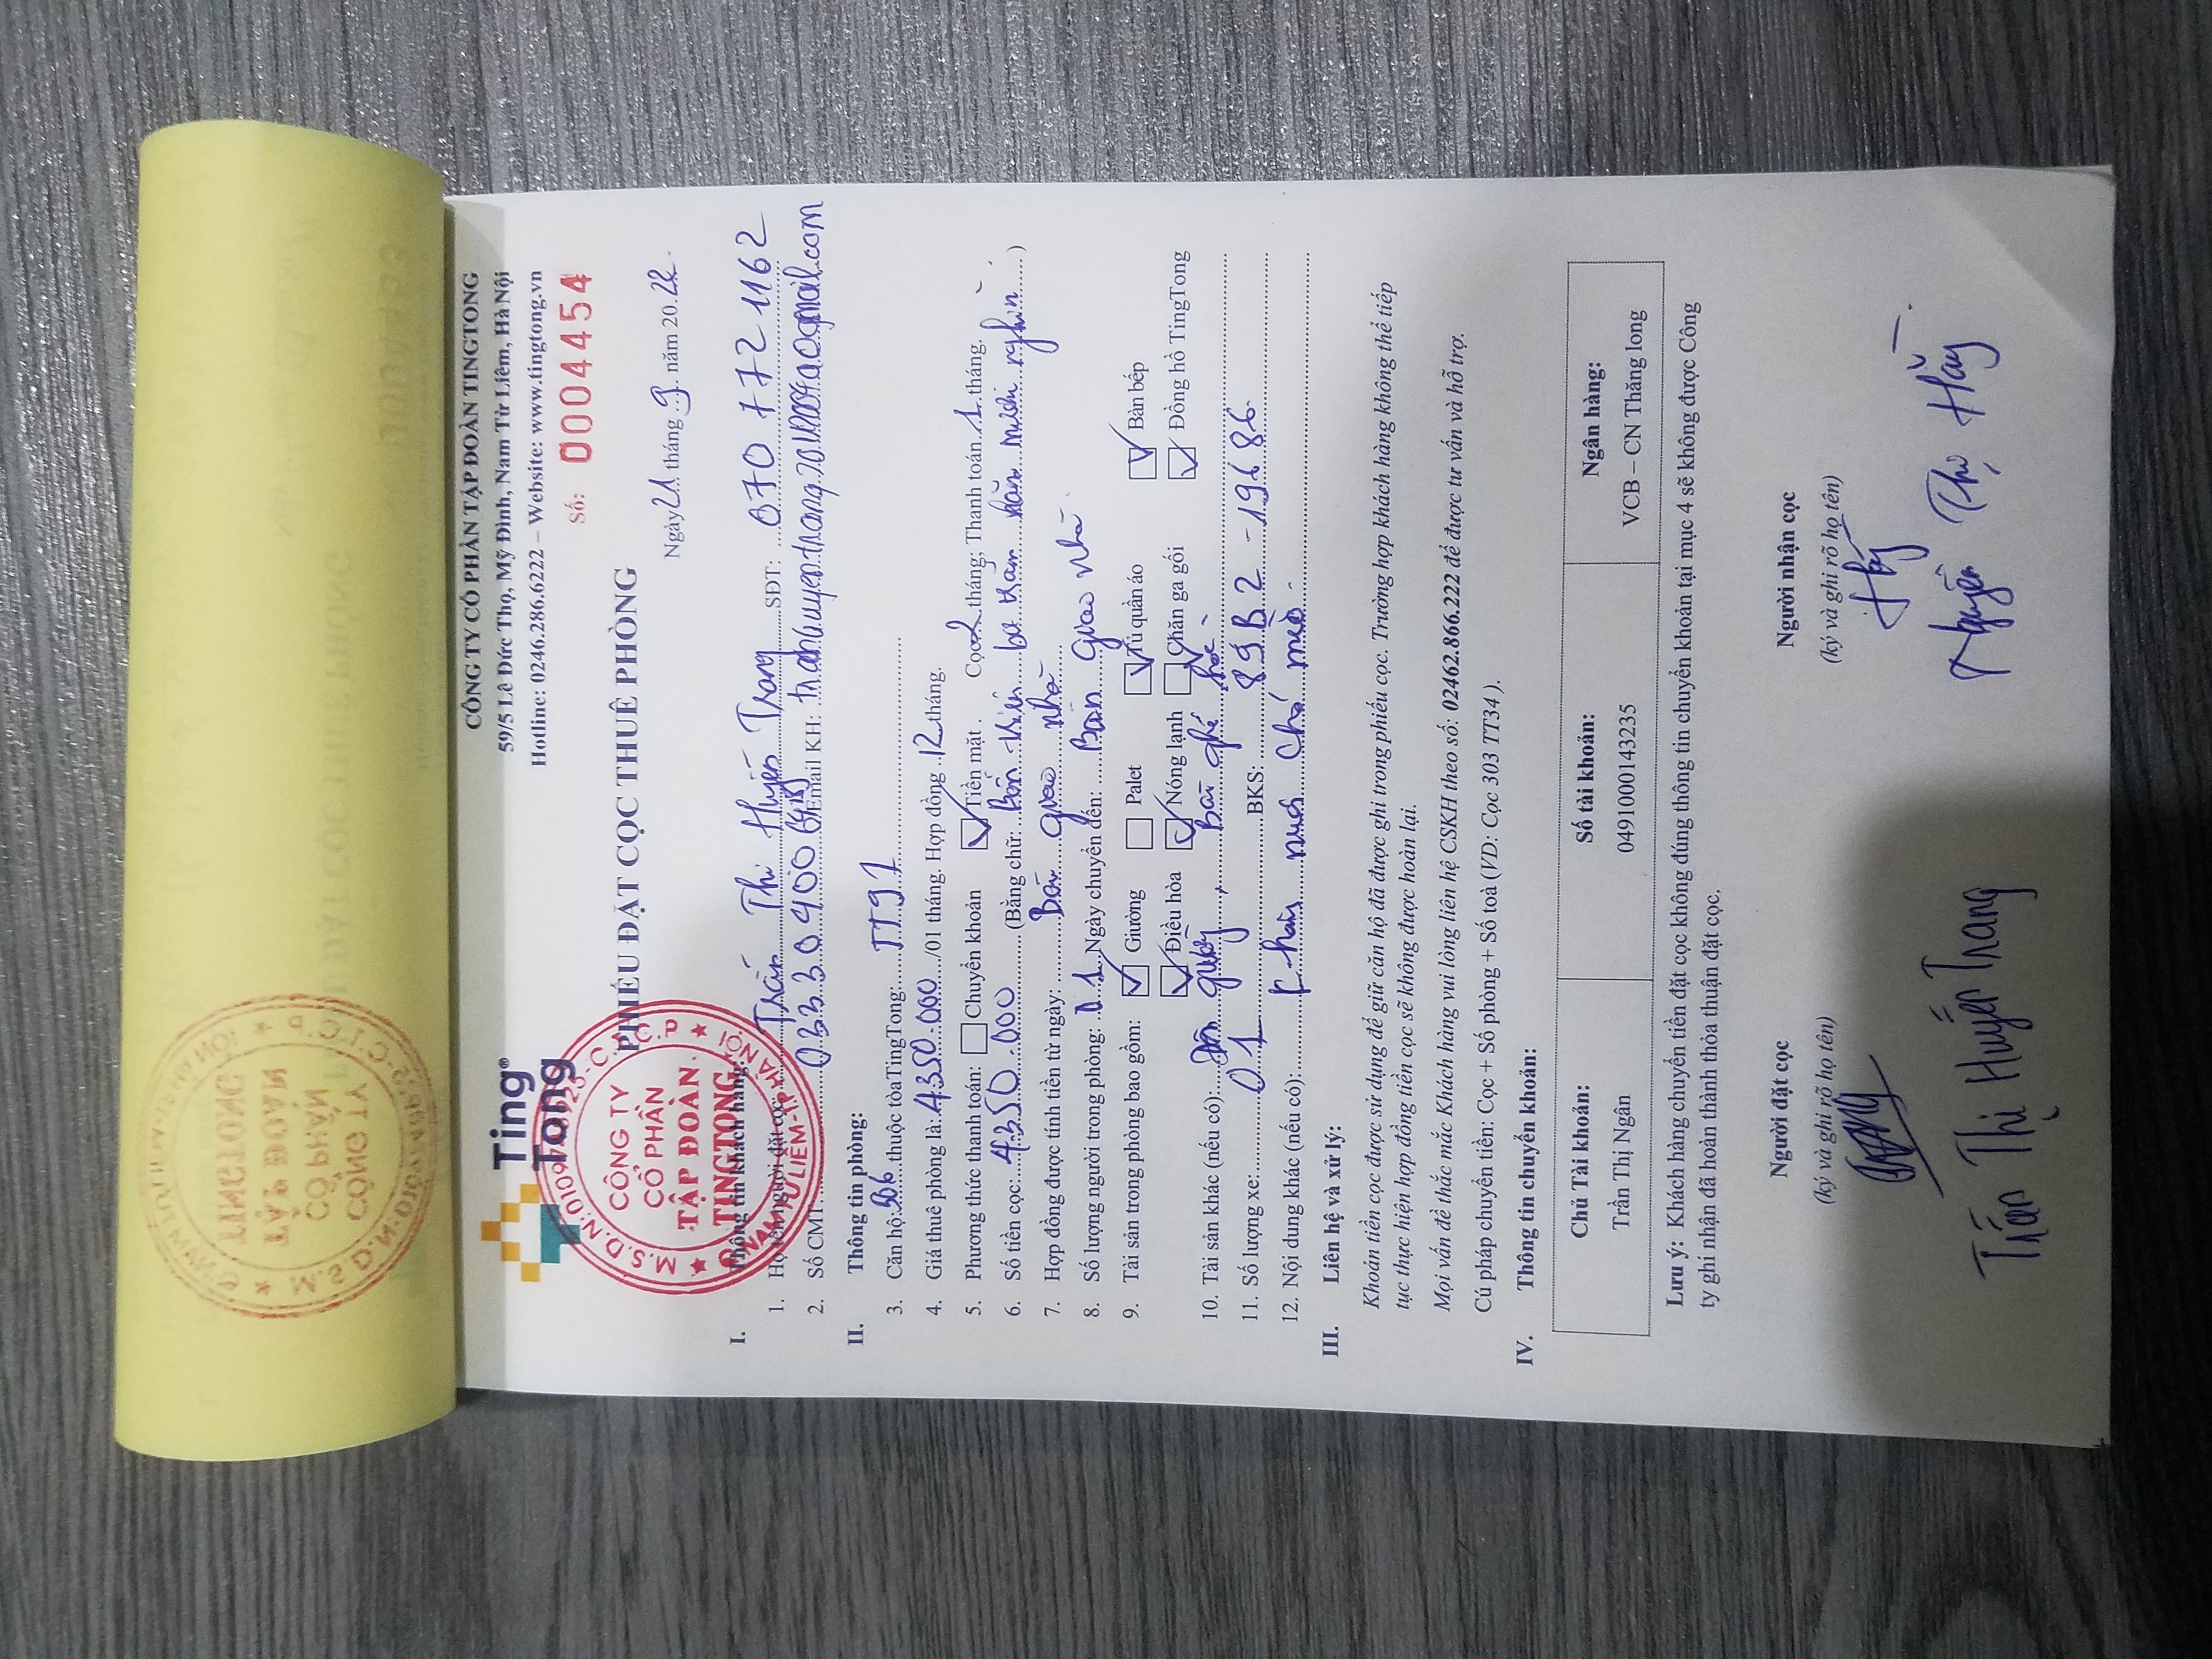 Ting
Tong
CÔNG TY CỔ PHẦN TẬP ĐOÀN TINGTONG
59/5 Lê Đức Thọ, Mỹ Đình, Nam Từ Liêm, Hà Nội
Hotline: 0246.286.6222 – Website: www.tingtong.vn
Số: 0004454
PHIẾU ĐẶT CỌC THUÊ PHÒNG
Ngày 21 tháng 9 năm 2022.
CÔNG TY
CỔ PHẦN
TẬP ĐOÀN
TINGTONG
I. Thông tin khách hàng:
1. Họ tên người đặt cọc: Trần Thị Huyền Trang SĐT: 070 772 1162
2. Số CMT: Email KH:
II. Thông tin phòng:
3. Căn hộ: 906 thuộc tòa TingTong: TT97
4. Giá thuê phòng là: 4350.000/01 tháng. Hợp đồng 12 tháng.
5. Phương thức thanh toán: Chuyển khoản Tiền mặt. Cọc 2 tháng; Thanh toán 1 tháng.
6. Số tiền cọc: 4350.000 (Bằng chữ: Bốn triệu ba trăm năm mươi nghìn)
7. Hợp đồng được tính tiền từ ngày: Bàn giao nhà
8. Số lượng người trong phòng: 01 Ngày chuyển đến: Bàn giao nhà
9. Tài sản trong phòng bao gồm: Giường Palet Tủ quần áo Bàn bếp
Điều hòa Nóng lạnh Chăn ga gối Đồng hồ TingTong
10. Tài sản khác (nếu có): quầy, Bàn ghế học
11. Số lượng xe: 01 BKS: 89B2 - 19686.
12. Nội dung khác (nếu có): nuôi chó mèo.
III. Liên hệ và xử lý:
Khoản tiền cọc được sử dụng để giữ căn hộ đã được ghi trong phiếu cọc. Trường hợp khách hàng không thể tiếp
tục thực hiện hợp đồng tiền cọc sẽ không được hoàn lại.
Mọi vấn đề thắc mắc Khách hàng vui lòng liên hệ CSKH theo số: 02462.866.222 để được tư vấn và hỗ trợ.
Cú pháp chuyển tiền: Cọc + Số phòng + Số toà (VD: Cọc 303 TT34).
IV. Thông tin chuyển khoản:
Chủ Tài khoản: Số tài khoản: Ngân hàng:
Trần Thị Ngân 0491000143235 VCB – CN Thăng long
Lưu ý: Khách hàng chuyển tiền đặt cọc không đúng thông tin chuyển khoản tại mục 4 sẽ không được Công
ty ghi nhận đã hoàn thành thỏa thuận đặt cọc.
Người đặt cọc Người nhận cọc
(ký và ghi rõ họ tên) (ký và ghi rõ họ tên)
Trần Thị Huyền Trang Nguyễn Thị Hằng